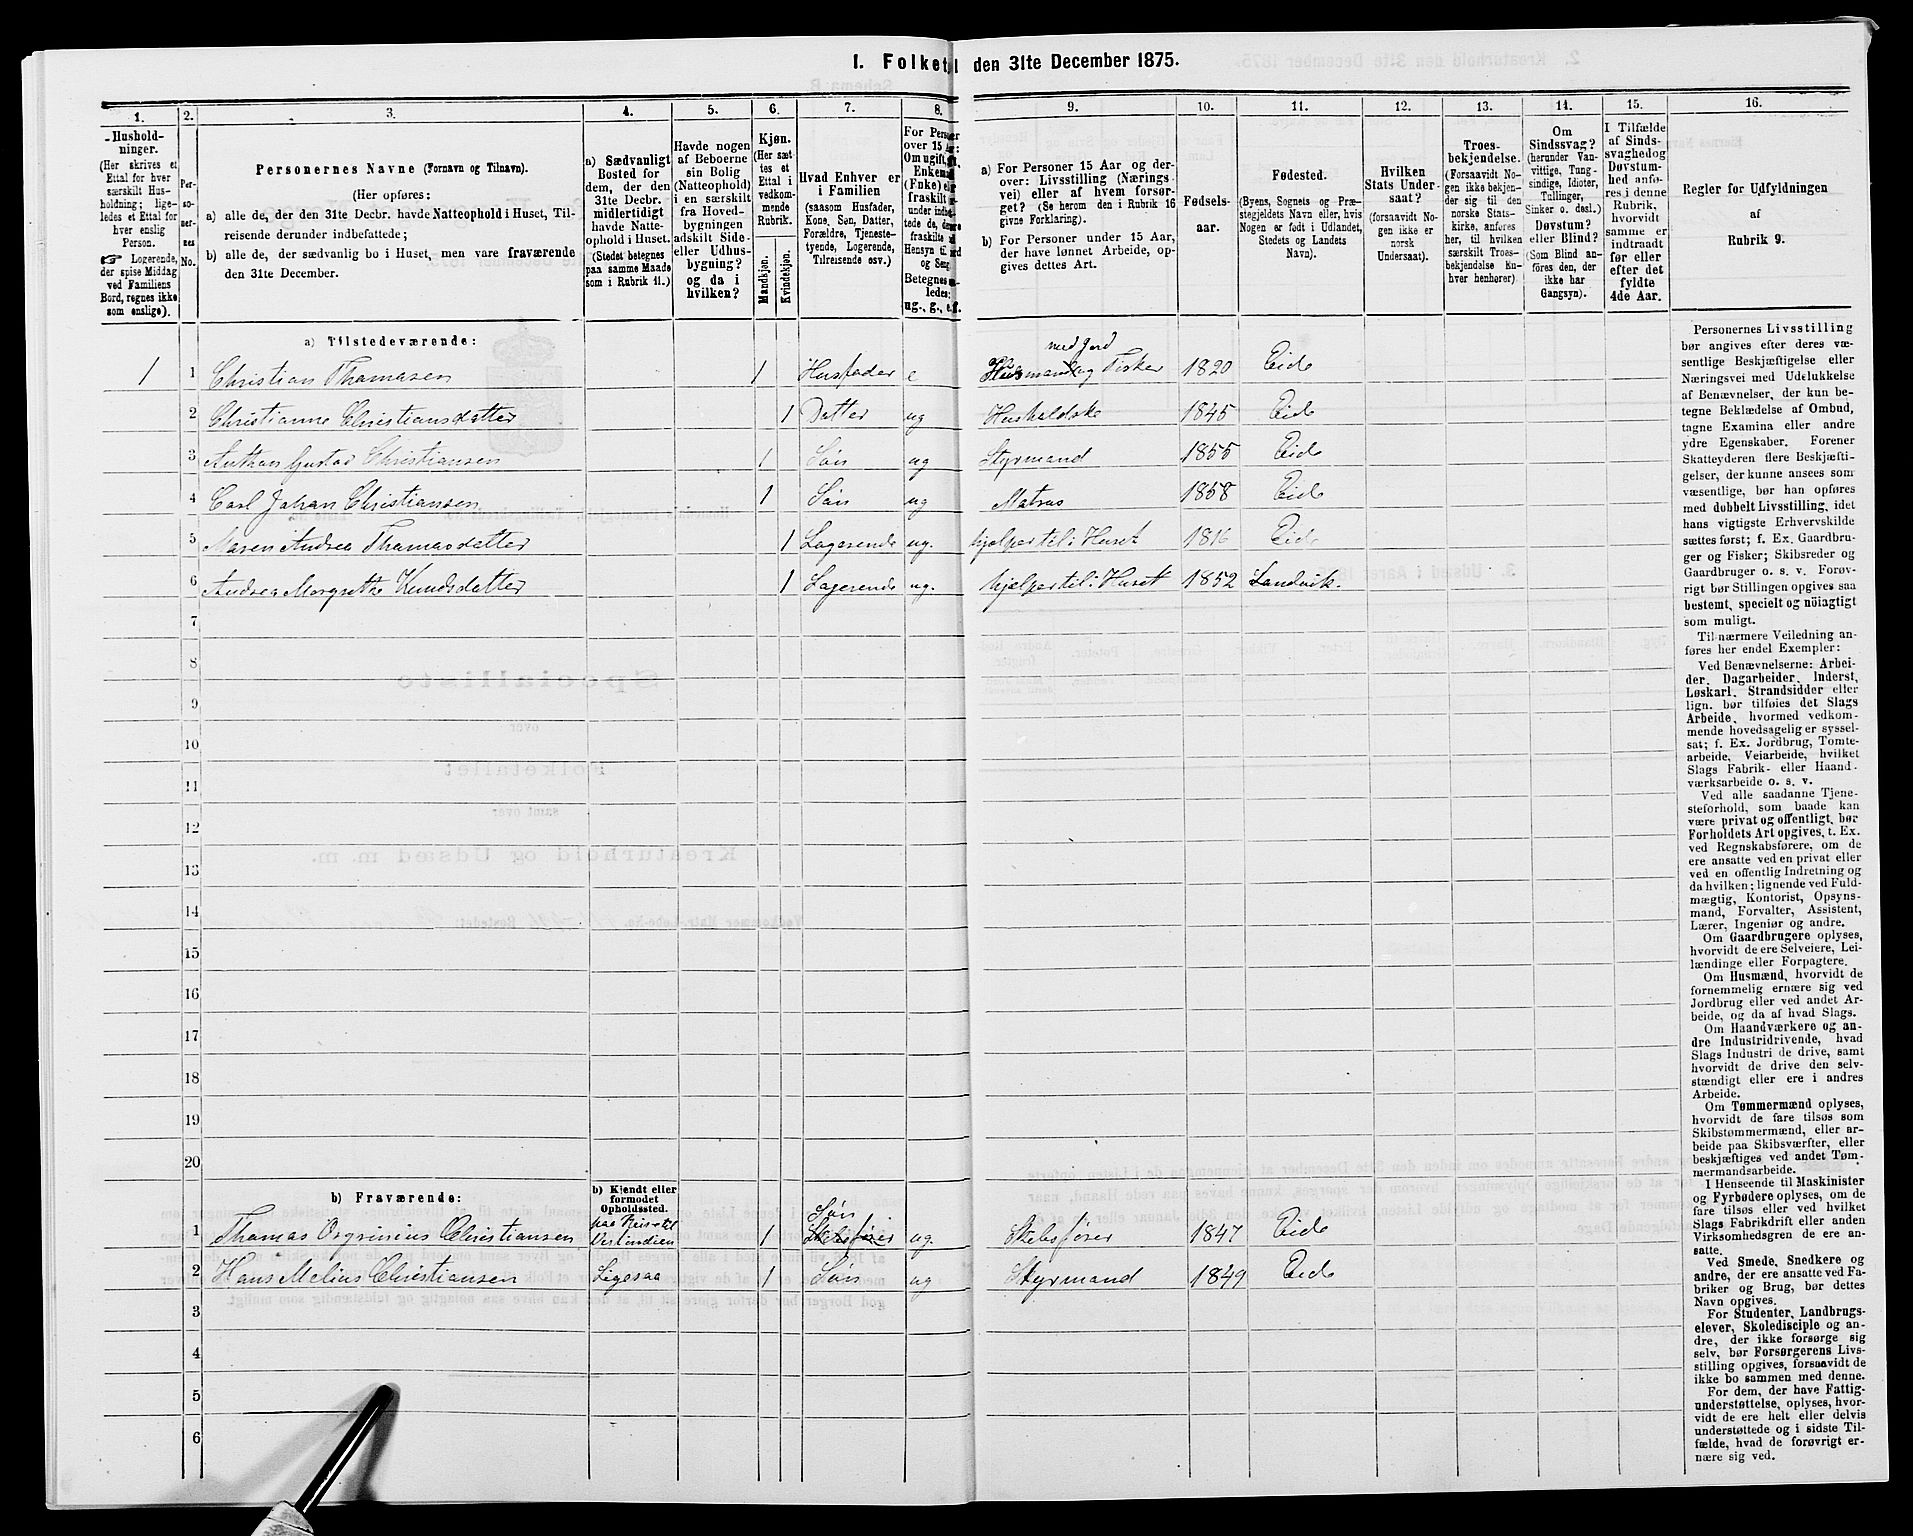 1. Folketal den 31te December 1875.
1. 2. 3. 4. 5. 6. 7. 8. 9. 10. 11. 12. 13. 14. 15. 16.
Hushold-
ninger.
(Her skrives et
Ettal for hver
særskilt Hus-
holdning; lige-
ledes et Ettal for
hver enslig
Person.
Logerende,
der spise Middag
ved Familiens
Bord, regnes ikke
som enslige).
Per-
so-
ner-
nes
No.
Personernes Navne (Fornavn og Tilnavn).
(Her opføres:
a) alle de, der den 31te Decbr. havde Natteophold i Huset, Til-
reisende derunder indbefattede;
b) alle de, der sædvanlig bo i Huset, men vare fraværende
den 31te December.
a) Sædvanligt
Bosted for
dem, der den
31te Decbr.
midlertidigt
havde Natte-
ophold i Huset.
(Stedet betegnes
paa samme Maade
som i Rubrik 11.)
Havde nogen
af Beboerne
sin Bolig
(Natteophold)
i en særskilt
fra Hoved-
bygningen
adskilt Side-
eller Udhus-
bygning?
og da i
hvilken?
Kjøn.
(Her sæt-
tes et
Ettal i
vedkom-
mende
Rubrik.
Mandkjøn.
Kvindekjøn.
Hvad Enhver er
i Familien
(saasom Husfader,
Kone, Søn, Datter,
Forældre, Tjeneste-
tyende, Logerende,
Tilreisende osv.)
For Personer
over 15 Aar:
Om ugift, gift,
Enkemand
(Enke) eller
fraskilt
Betegnes saa-
ledes:
ug., g., e., f.
a) For Personer 15 Aar og der-
over: Livsstilling (Nærings-
vei) eller af hvem forsør-
get? (Se herom den i Rubrik 16
givne Forklaring).
b) For Personer under 15 Aar,
der have lønnet Arbeide, op-
gives dettes Art.
Fødsels-
aar.
Fødested.
(Byens, Sognets og Præ-
stegjeldets Navn eller, hvis
Nogen er født i Udlandet,
Stedets og Landets
Navn).
Hvilken
Stats Under-
saat?
(forsaavidt No-
gen ikke er
norsk
Undersaat).
Troes-
bekjendelse.
(Forsaavidt No-
gen ikke bekjen-
der sig til den
norske Stats-
kirke, anføres
her, til hvilken
særskilt Troes-
bekjendelse En-
hver henhører)
Om
Sindssvag?
(herunder Van-
vittige, Tung-
sindige, Idioter,
Tullinger,
Sinker o. desl.)
Døvstum?
eller Blind?
(Som Blind an-
føres den, der
ikke har
Gangsyn).
I Tilfælde
af Sinds-
svaghed og
Døvstum-
hed anfø-
res i denne
Rubrik,
hvorvidt
samme er
indtraadt
før eller
efter det
fyldte
4de Aar.
Regler for Udfyldningen
af
Rubrik 9.
a) Tilstedeværende:
med Jord
1 1 Christian Thomasen 1 Husfader e Husmand og Fisker 1820 Eide
2 Christianne Christiansdatter 1 Datter ug Husholdske 1845 Eide
3 Anthon Gustav Christiansen 1 Søn ug Styrmand 1855 Eide
4 Carl Johan Christiansen 1 Søn ug Matros 1858 Eide
5 Maren Andrea Thomasdatter 1 Logerende ug. hjelper til i Huset 1816 Eide
6 Andrea Margrethe Knudsdatter 1 Logerende ug. hjelper til i Huset 1852 Landvik.
7
8
9
10
11
12
13
14
15
16
17
18
19
20
b) Fraværende:
b) Kjendt eller
formodet
Opholdssted.
1 Thomas Orginius Christiansen paa Reise til Vestindien 1 Skibsfører Søn ug. Skibsfører 1847 Eide
2 Hans Melius Christiansen Ligesaa 1 Søn ug Styrmand 1849 Eide
3
4
5
6
Personernes Livsstilling
bør angives efter deres væ-
sentlige Beskjæftigelse eller
Næringsvei med Udelukkelse
af Benævnelser, der kun be-
tegne Beklædelse af Ombud,
tagne Examina eller andre
ydre Egenskaber. Forener
Skatteyderen flere Beskjæfti-
gelser, der kunne ansees som
væsentlige, bør han opføres
med dobbelt Livsstilling, idet
hans vigtigste Erhvervskilde
sættes først; f. Ex. Gaardbru-
ger og Fisker; Skibsreder og
Gaardbruger o. s. v. Forøv-
rigt bør Stillingen opgives saa
bestemt, specielt og nöiagtigt
som muligt.
Til nærmere Veiledning an-
føres her endel Exempler:
Ved Benævnelserne: Arbei-
der, Dagarbeider, Inderst,
Løskarl, Strandsidder eller
lign. bør tilføies det Slags
Arbeide, hvormed vedkom-
mende hovedsagelig er syssel-
sat; f. Ex. Jordbrug, Tomte-
arbeide, Veiarbeide, hvilket
Slags Fabrik- eller Haand-
værksarbeide o. s. v.
Ved alle saadanne Tjene-
steforhold, som baade kan
være privat og offentligt, bør
Forholdets Art opgives, t. Ex.
ved Regnskabsførere, om de
ere ansatte ved en privat eller
ved en offentlig Indretning og
da hvilken; lignende ved Fuld-
mægtig, Kontorist, Opsyns-
mand, Forvalter, Assistent,
Lærer, Ingeniør og andre.
Om Gaardbrugere oplyses,
hvorvidt de ere Selveiere, Lei-
lændinge eller Forpagtere.
Om Husmænd, hvorvidt de
fornemmelig ernære sig ved
Jordbrug eller ved andet Ar-
beide, og da af hvad Slags.
Om Haandværkere og an-
dre Industridrivende, hvad
Slags Industri de drive, samt
hvorvidt de drive den selv-
stændigt eller ere i andres
Arbeide.
Om Tømmermænd oplyses,
hvorvidt de fare tilsøs som
Skibstømmermænd, eller ar-
beide paa Skibsværfter, eller
beskjæftiges ved andet Tøm-
mermandsarbeide.
I Henseende til Maskinister
og Fyrbødere oplyses, om de
fare tilsøs eller ved hvilket
Slags Fabrikdrift eller anden
Virksomhedsgren de ere an-
satte.
Ved Smede, Snedkere og
andre, der ere ansatte ved Fa-
briker og Brug, bør dettes
Navn opgives.
For Studenter, Landbrugs-
elever, Skoledisciple og an-
dre, der ikke forsørge sig
selv, bør Forsørgerens Livs-
stilling opgives, forsaavidt de
ikke bo sammen med denne.
For dem, der have Fattig-
understøttelse, oplyses, hvor-
vidt de ere helt eller delvis
understøttede og i sidste Til-
fælde, hvad de forøvrigt er-
nære sig ved.